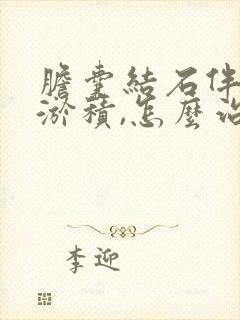 膽囊結石伴
淤積,怎麼治
李迎